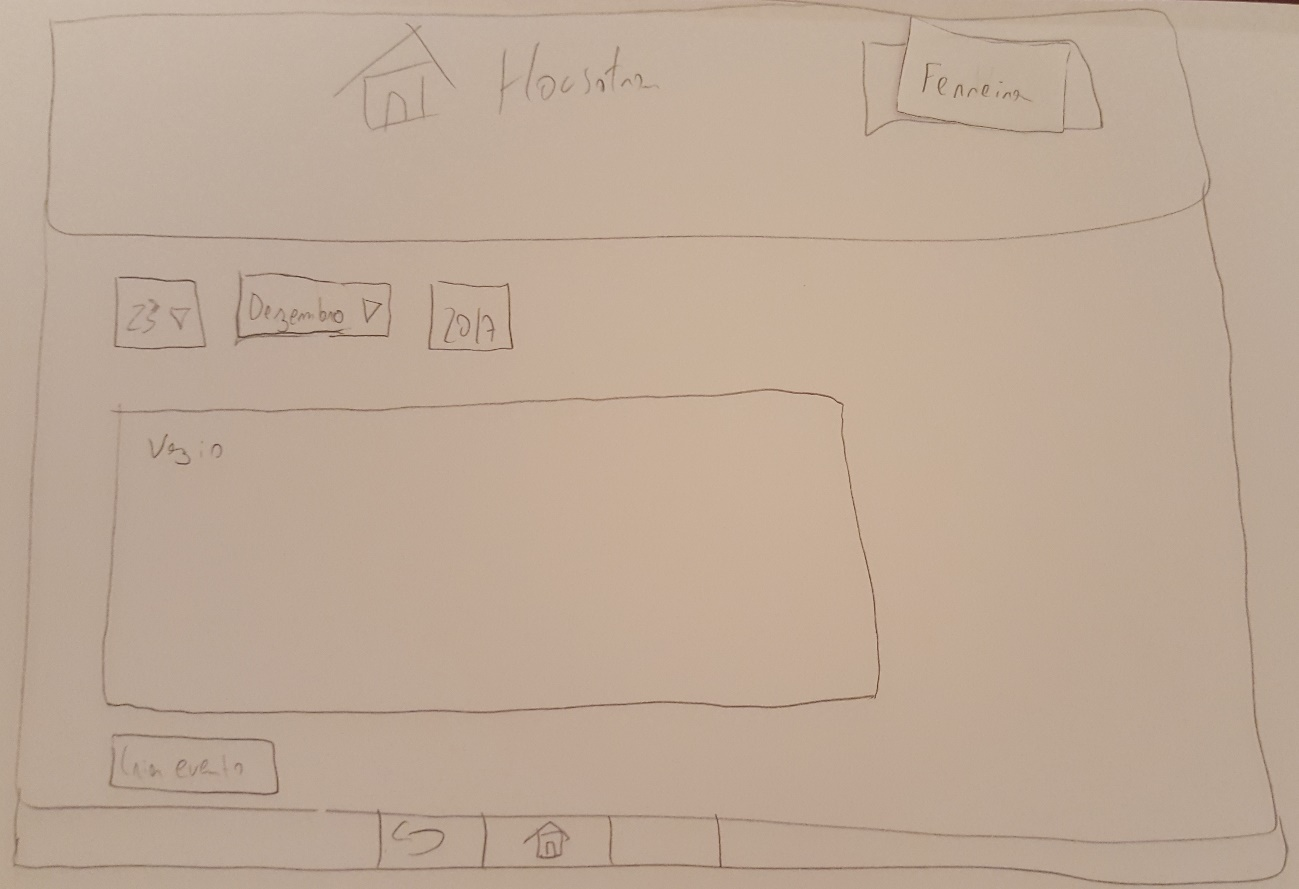 Hocsatra
Ferreira
23 Dezembro 2017
Vazio
Criar evento